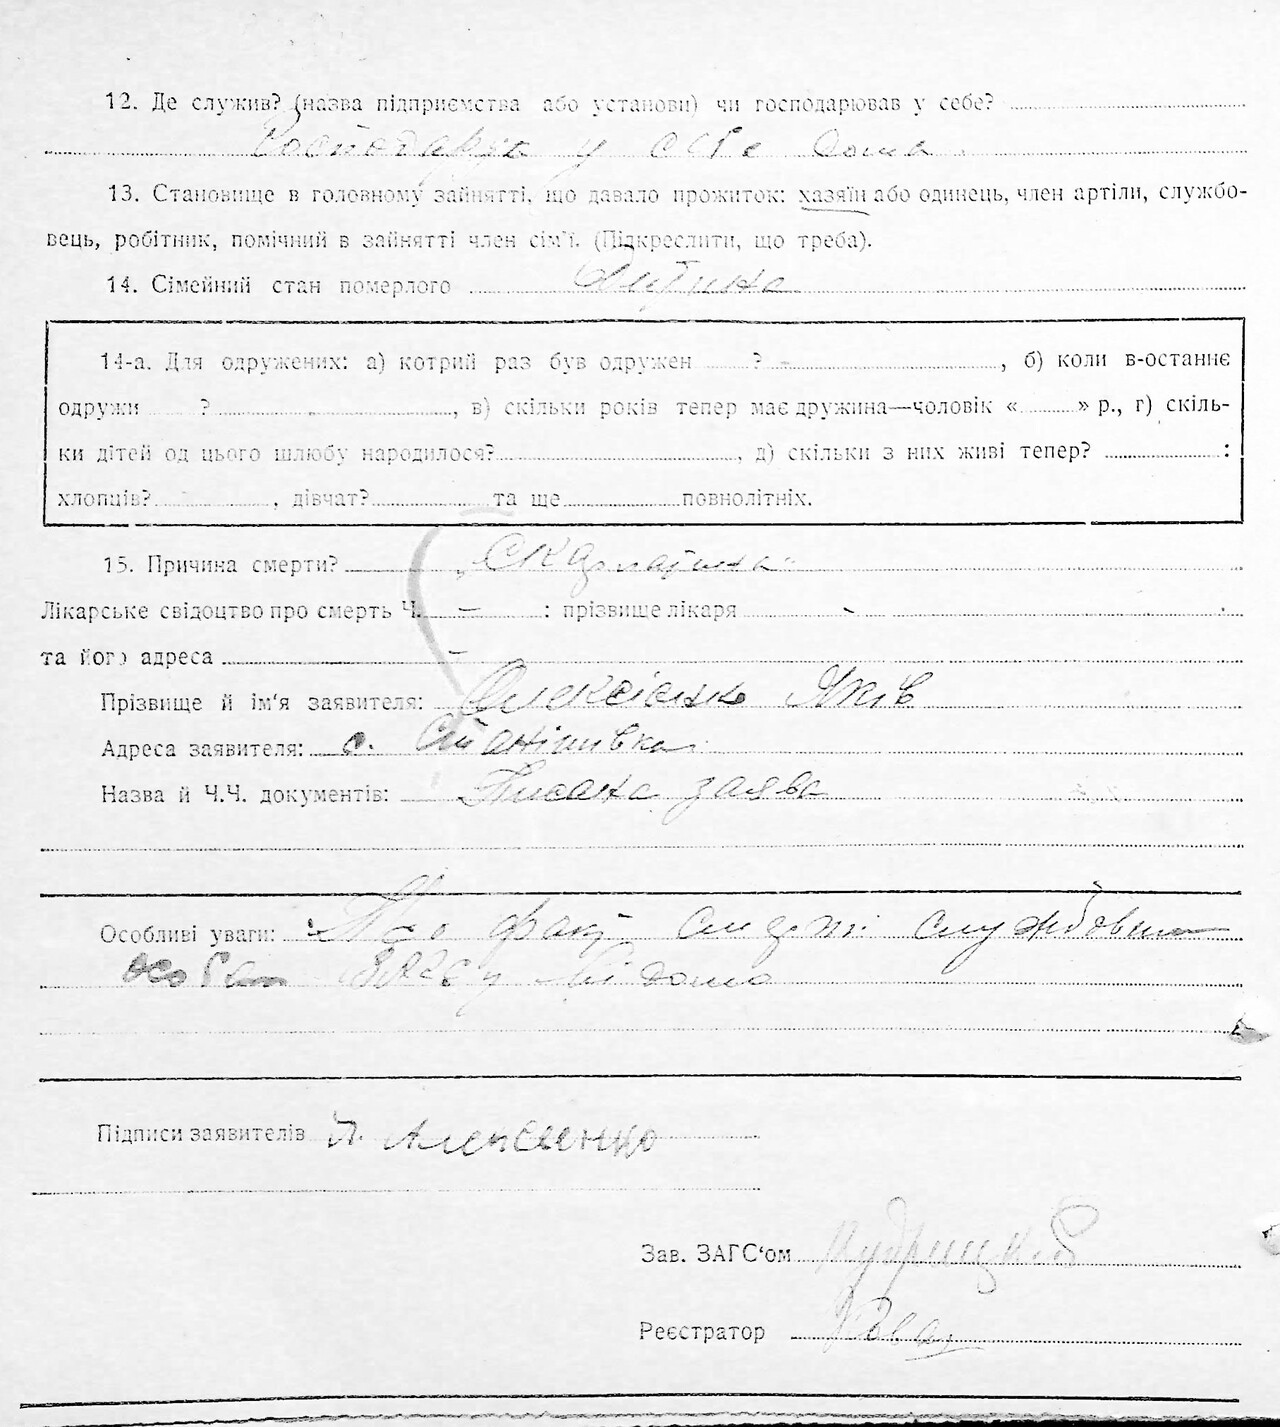 12. Де служив? (назва підприємства або установи) чи господарював у себе?
Господарук у себе дома
13. Становище в головному зайнятті, що давало прожиток: хазяїн або одинець, член артіли, службо-
вець, робітник, помічний в зайнятті член сім'ї. (Підкреслити, що треба).
14. Сімейний стан померлого Дитина
14-а. Для одружених: а) котрий раз був одружен ? - , б) коли в-останнє
одружи ? , в) скільки років тепер має дружина—чоловік « » р., г) скіль-
ки дітей од цього шлюбу народилося? , д) скільки з них живі тепер? :
хлопців? , дівчат? та ще повнолітніх.
15. Причина смерти? „Скарлатина"
Лікарське свідоцтво про смерть Ч. – : прізвище лікаря -
та його адреса –
Прізвище й ім'я заявителя: Олексієнко Яків
Адреса заявителя: с. Станішівка
Назва й Ч.Ч. документів: Писана заява
Особливі уваги: Про факт смерти службовим
особам ЗАГСу відомо
Підписи заявителів Я. Алексеенко
Зав. ЗАГС'ом Кудрицкий
Реєстратор